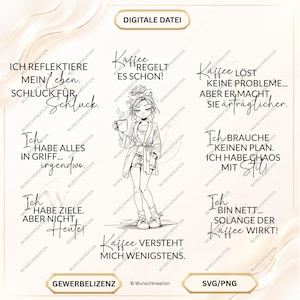 DIGITALE DATEI
ICH REFLEKTIERE
MEIN Leben.
SCHLUCK FÜR
Schluck.
Kaffee
REGELT
ES SCHON!
Kaffee LÖST
KEINE PROBLEME...
ABER ER MACHT
SIE erträglicher.
Ich
HABE ALLES
IN GRIFF...
irgendwo.
Ich BRAUCHE
KEINEN PLAN.
ICH HABE CHAOS
MIT Stil
Ich
HABE ZIELE.
ABER NICHT
Heute!
Ich
BIN NETT...
SOLANGE DER
Kaffee WIRKT!
Kaffee VERSTEHT
MICH WENIGSTENS.
GEWERBELIZENZ
© Wunschkreation
SVG/PNG